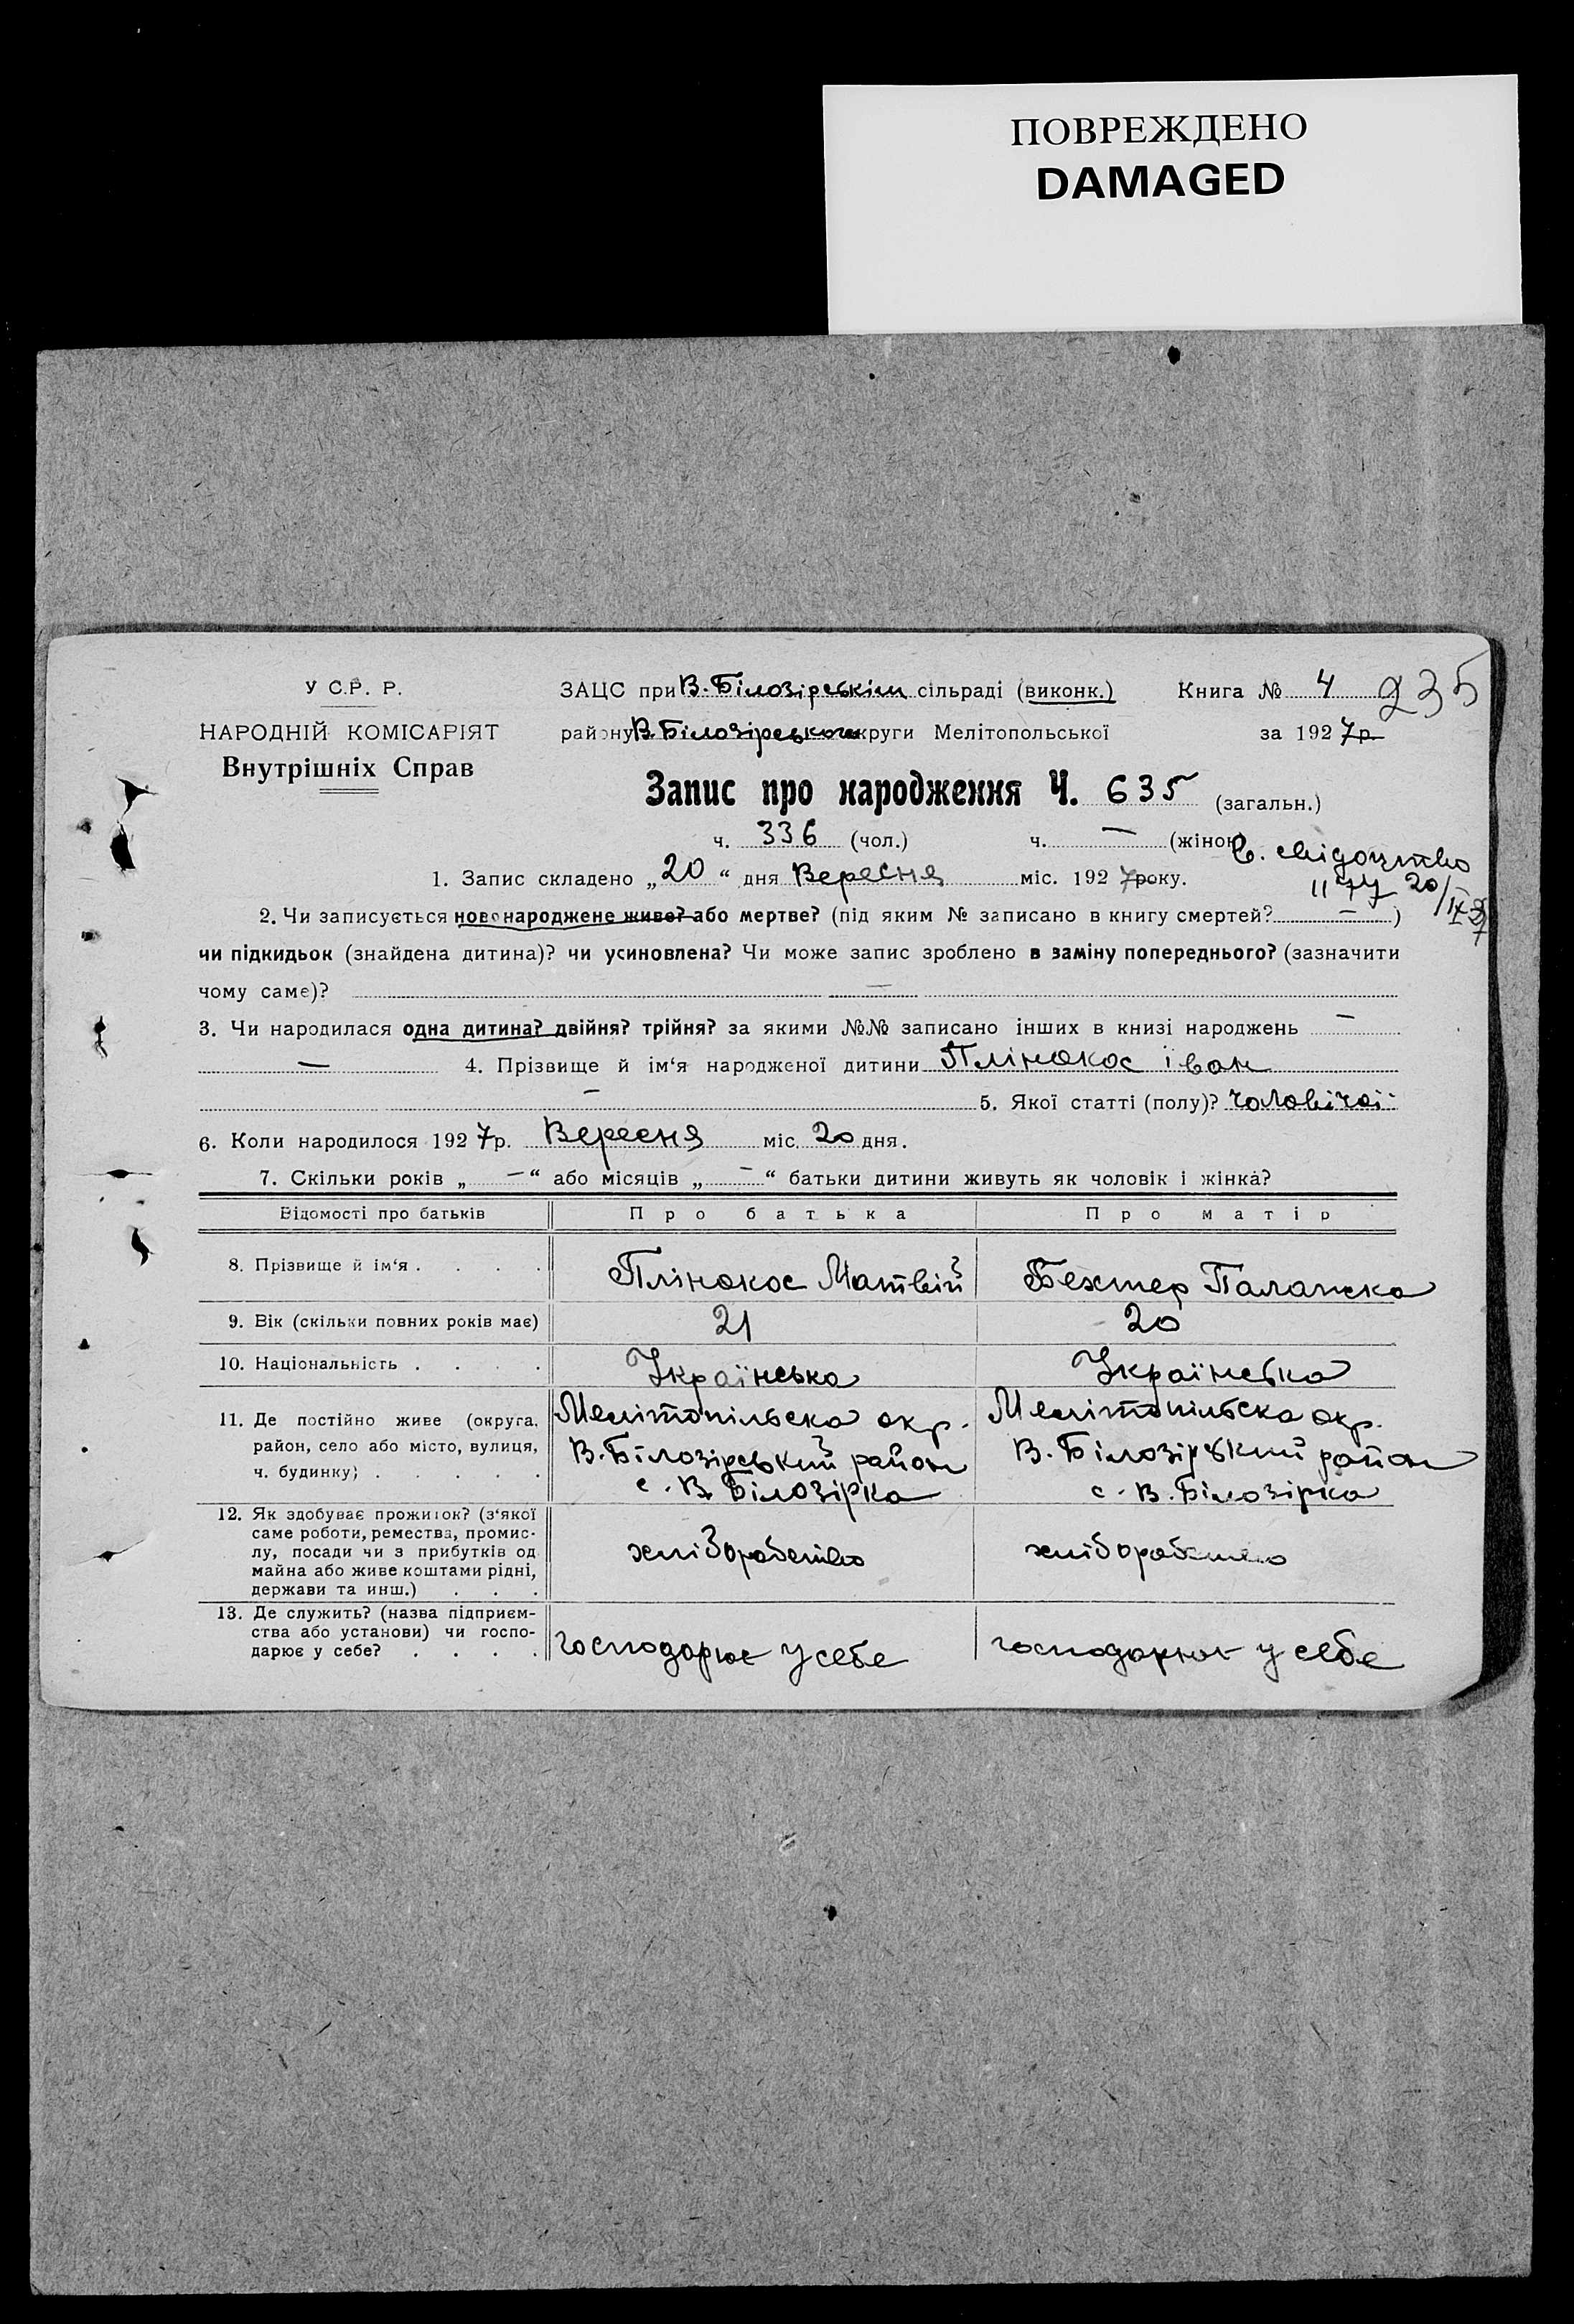 ПОВРЕЖДЕНО
DAMAGED
У С.Р. Р.
НАРОДНІЙ КОМІСАРІЯТ
Внутрішніх Справ
ЗАЦС при В. Білозірськім сільраді (виконк.)
Книга № 4 235
району В. Білозірського округи Мелітопольської
за 1927 р.
Запис про народження Ч. 635 (загальн.)
ч. 336 (чол.) ч. — (жіноч.)
1. Запис складено „20“ дня Вересня міс. 1927 року.
2. Чи записується новонароджене живе? або мертве? (під яким № записано в книгу смертей? — )
чи підкидьок (знайдена дитина)? чи усиновлена? Чи може запис зроблено в заміну попереднього? (зазначити
чому саме)? —
3. Чи народилася одна дитина? двійня? трійня? за якими №№ записано інших в книзі народжень —
— 4. Прізвище й ім‘я народженої дитини Плінокос іван
— 5. Якої статті (полу)? чоловічої
6. Коли народилося 1927 р. Вересня міс. 20 дня.
7. Скільки років „ — “ або місяців „ — “ батьки дитини живуть як чоловік і жінка?
Відомості про батьків Про батька Про матір
8. Прізвище й ім‘я . . . . Плінокос Матвій Бехтер Палажка
9. Вік (скільки повних років має) 21 20
10. Національність . . . . Українська Українська
11. Де постійно живе (округа, район, село або місто, вулиця, ч. будинку) . . . . .
Мелітопільська окр.
В. Білозірський район
с. В. Білозірка
Мелітопільска окр.
В. Білозірський район
с. В. Білозірка
12. Як здобуває прожиток? (з‘якої
саме роботи, ремества, промис-
лу, посади чи з прибутків од
майна або живе коштами рідні,
держави та инш.) . . .
хліборобство
хліборобство
13. Де служить? (назва підприєм-
ства або установи) чи госпо-
дарює у себе? . . . .
господарює у себе
господарює у себе